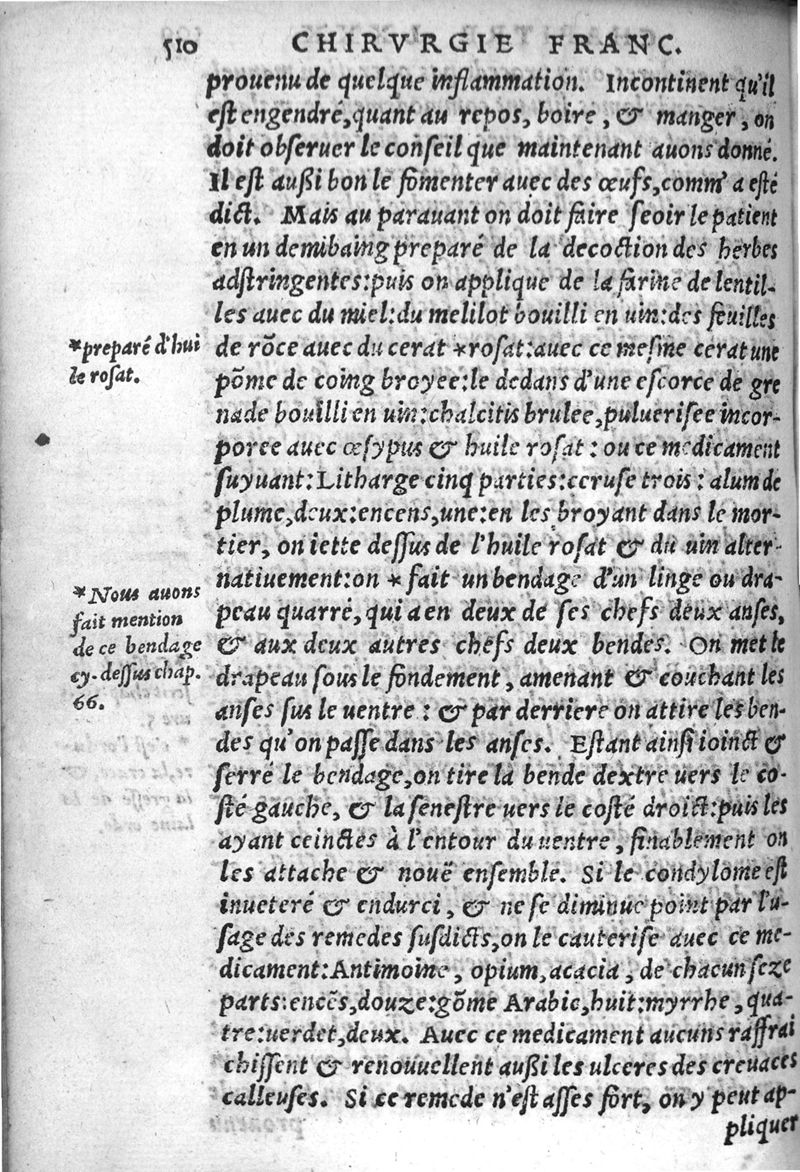 510 CHIRVRGIE FRANC.
prouenu de quelque inflammation. Incontinent qu'il
est engendré, quant au repos, boire, & manger, on
doit obseruer le conseil que maintenant auons donné.
Il est außi bon le fomenter auec des œufs, comm' a esté
dict. Mais au parauant on doit faire seoir le patient
en un demibaing preparé de la decoction des herbes
adstringentes: puis on applique de la farine de lentil-
les auec du miel: du melilot bouilli en uin: des feuilles
*preparé d'hui
le rosat.
de rõce auec du cerat *rosat: auec ce mesme cerat une
põme de coing broyee: le dedans d'une escorce de gre
nade bouilli en uin: chalcitis brulee, puluerisee incor-
poree auec œsypus & huile rosat: ou ce medicament
suyuant: Litharge cinq parties: ceruse trois: alum de
plume, deux: encens, une: en les broyant dans le mor-
tier, on iette dessus de l'huile rosat & du uin alter-
natiuement: on * fait un bendage d'un linge ou dra-
*Nous auons
fait mention
de ce bendage
cy-dessus chap.
66.
peau quarré, qui a en deux de ses chefs deux anses,
& aux deux autres chefs deux bendes. On met le
drapeau sous le fondement, amenant & couchant les
anses sus le uentre: & par derriere on attire les ben-
des qu'on passe dans les anses. Estant ainsi ioinct &
serré le bendage, on tire la bende dextre uers le co-
sté gauche, & la senestre uers le costé droict: puis les
ayant ceinctes à l'entour du uentre, finablement on
les attache & nouë ensemble. Si le condylome est
inueteré & endurci, & ne se diminue point par l'u-
sage des remedes susdicts, on le cauterise auec ce me-
dicament: Antimoine, opium, acacia, de chacun seze
parts: encẽs, douze: gõme Arabic, huit: myrrhe, qua-
tre: uerdet, deux. Auec ce medicament aucuns raffrai
chissent & renouuellent außi les ulceres des creuaces
calleuses. Si ce remede n'est asses fort, on y peut ap-
pliquer